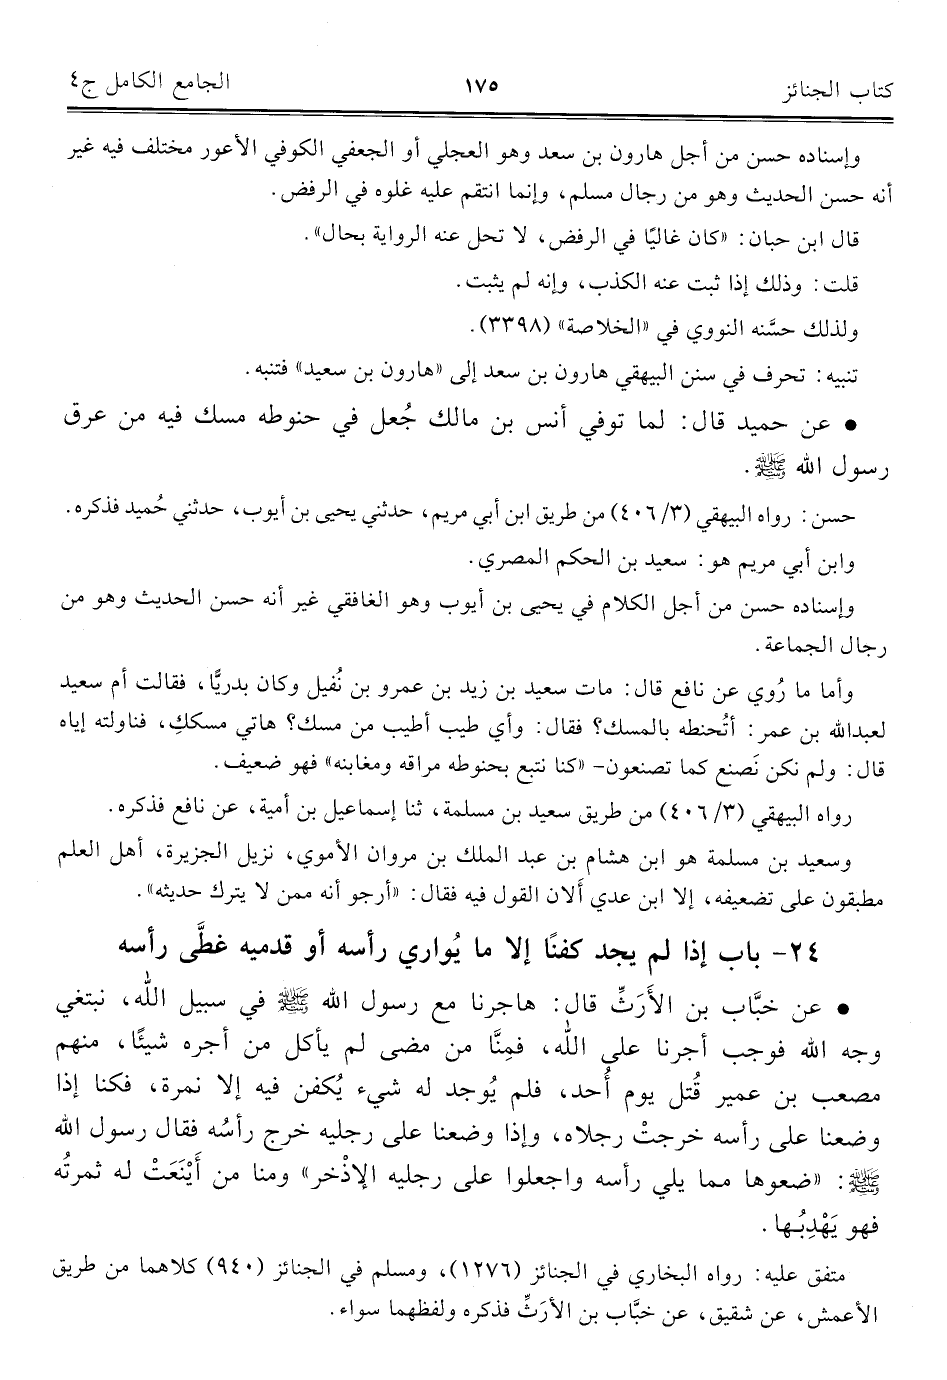 كتاب الجنائز ١٧٥ الجامع الكامل ج٤
وإسناده حسن من أجل هارون بن سعد وهو العجلي أو الجعفي الكوفي الأعور مختلف فيه غير
أنه حسن الحديث وهو من رجال مسلم، وإنما انتقم عليه غلوه في الرفض.
قال ابن حبان: «كان غاليًا في الرفض، لا تحل عنه الرواية بحال».
قلت: وذلك إذا ثبت عنه الكذب، وإنه لم يثبت.
ولذلك حسَّنه النووي في «الخلاصة» (٣٣٩٨).
تنبيه: تحرف في سنن البيهقي هارون بن سعد إلى «هارون بن سعيد» فتنبه.
• عن حميد قال: لما توفي أنس بن مالك جُعل في حنوطه مسك فيه من عرق
رسول الله ﷺ.
حسن: رواه البيهقي (٣/ ٤٠٦) من طريق ابن أبي مريم، حدثني يحيى بن أيوب، حدثني حُميد فذكره.
وابن أبي مريم هو: سعيد بن الحكم المصري.
وإسناده حسن من أجل الكلام في يحيى بن أيوب وهو الغافقي غير أنه حسن الحديث وهو من
رجال الجماعة.
وأما ما رُوي عن نافع قال: مات سعيد بن زيد بن عمرو بن نُفيل وكان بدريًّا، فقالت أم سعيد
لعبدالله بن عمر: أتُحنطه بالمسك؟ فقال: وأي طيب أطيب من مسك؟ هاتي مسككِ، فناولته إياه
قال: ولم نكن نَصنع كما تصنعون- «كنا نتبع بحنوطه مراقه ومغابنه» فهو ضعيف.
رواه البيهقي (٣/ ٤٠٦) من طريق سعيد بن مسلمة، ثنا إسماعيل بن أمية، عن نافع فذكره.
وسعيد بن مسلمة هو ابن هشام بن عبد الملك بن مروان الأموي، نزيل الجزيرة، أهل العلم
مطبقون على تضعيفه، إلا ابن عدي أَلان القول فيه فقال: «أرجو أنه ممن لا يترك حديثه».
٢٤- باب إذا لم يجد كفنًا إلا ما يُواري رأسه أو قدميه غطَّى رأسه
• عن خبَّاب بن الأَرَتِّ قال: هاجرنا مع رسول الله ﷺ في سبيل الله، نبتغي
وجه الله فوجب أجرنا على الله، فمِنَّا من مضى لم يأكل من أجره شيئًا، منهم
مصعب بن عمير قُتل يوم أُحد، فلم يُوجد له شيء يُكفن فيه إلا نمرة، فكنا إذا
وضعنا على رأسه خرجتْ رجلاه، وإذا وضعنا على رجليه خرج رأسُه فقال رسول الله
ﷺ: «ضعوها مما يلي رأسه واجعلوا على رجليه الإذْخر» ومنا من أَيْنَعَتْ له ثمرتُه
فهو يَهْدِبُها.
متفق عليه: رواه البخاري في الجنائز (١٢٧٦)، ومسلم في الجنائز (٩٤٠) كلاهما من طريق
الأعمش، عن شقيق، عن خبَّاب بن الأرَتِّ فذكره ولفظهما سواء.